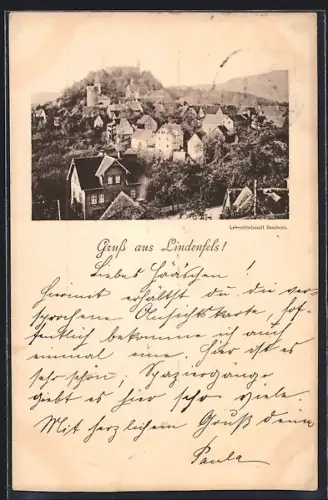 Lehrmittelanstalt Bensheim.
Gruß aus Lindenfels!
Liebes Häschen!
Hiermit erhältst du die ver-
sprochene Ansichtskarte, hof-
fentlich bekomme ich auch
einmal eine. Hier ist es
sehr schön; Spaziergänge
giebt es hier sehr viele.
Mit herzlichem Gruß deine
Paula